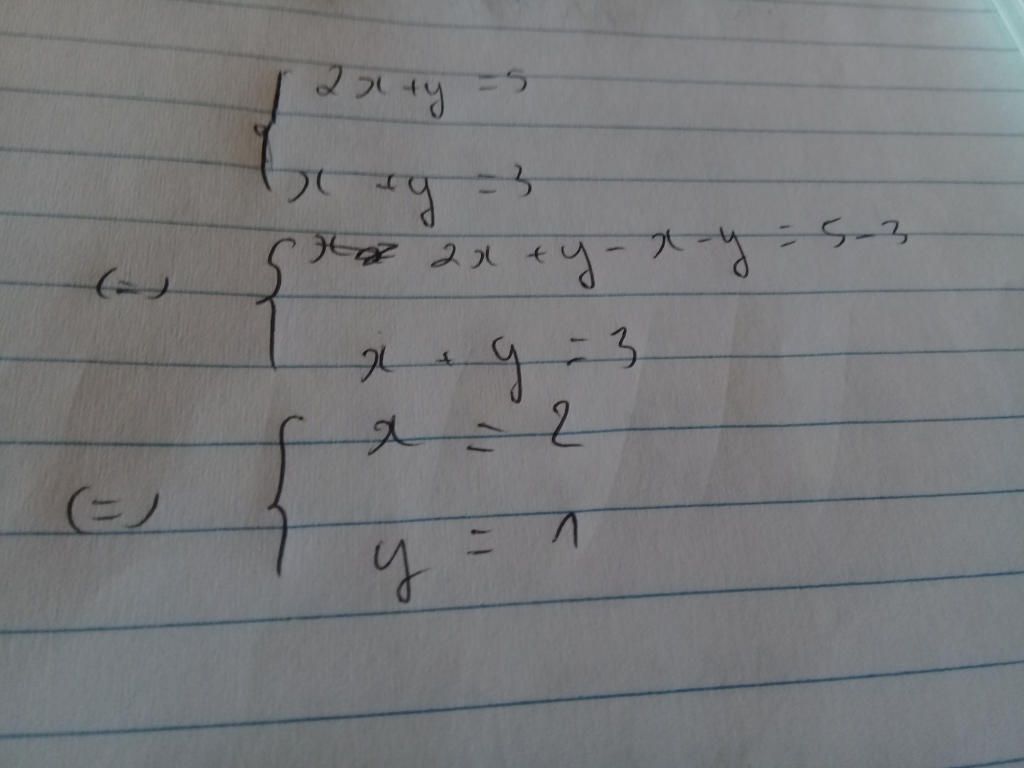 2x+y = 5
x + y = 3
(=) 2x + y - x - y = 5 - 3
x + y = 3
x = 2
(=)
y = 1